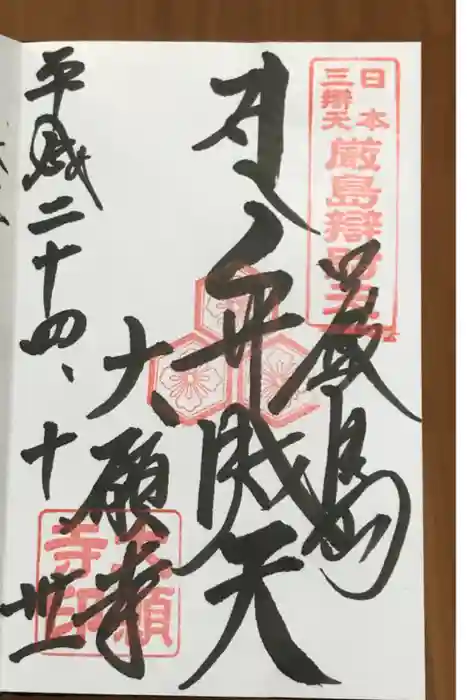 日本
三辨天
厳島辯財天
厳島
弁財天
大願寺
大願寺印
平成二十四、十